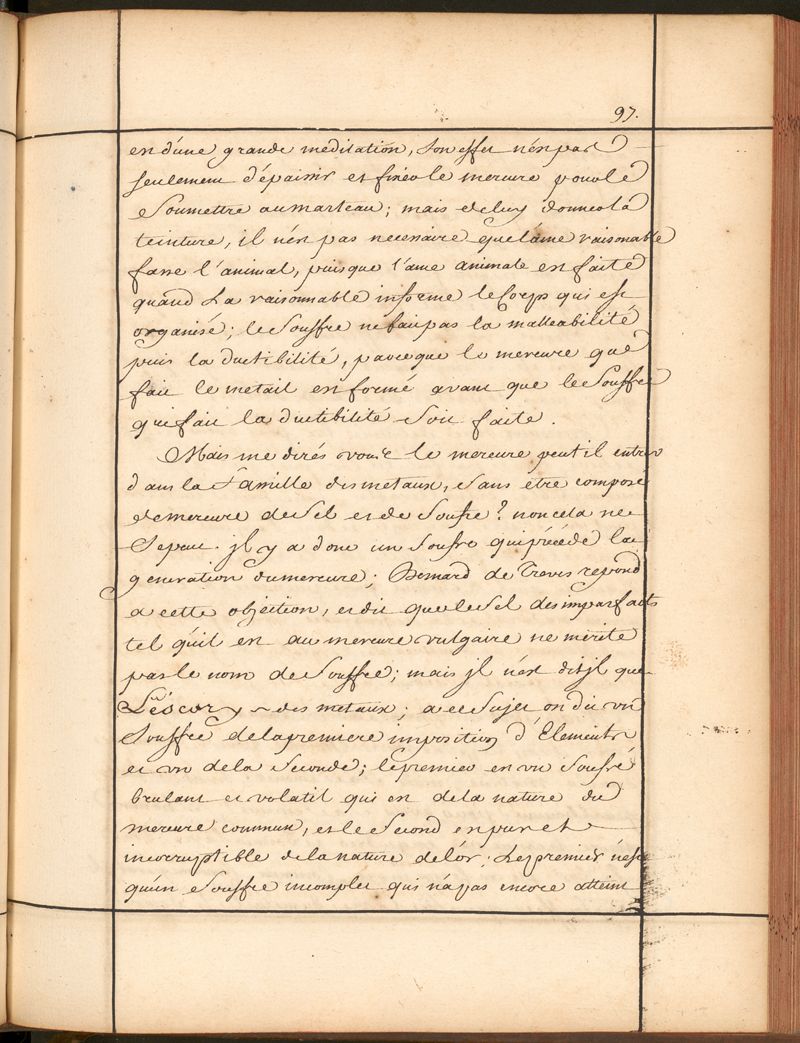 97.
en d'une grande meditation, son effet n'en pas
seulement d'épaissir et fixer le mercure pour le
soumettre au marteau; mais de luy donner la
teinture, il n'en pas necessaire que l'ame raisonable
fasse l'animal, puisque l'ame animale en faite
quand La raisonnable informe le Corps qui est
organisé; le Souffre ne fait pas la malleabilité
puis la ductibilité, parceque le mercure que
fait le metail en formé avant que le Souffre
qui fait la ductibilité soit faite.
Mais me dirés vous le mercure peut il entrer
dans la Famille des metaux, sans etre composé
de mercure de Sel et de Soufre? non cela ne
se peut. jl y a donc un Soufre qui précéde la
generation du mercure; Bernard de Treves repond
a cette objection, et dit que le Sel des imparfaits
tel qu'il en au mercure vulgaire ne mérite
pas le nom de Souffre; mais jl n'est dit jl que
Léscory des metaux; a ce Sujet on dit un
Souffre de la premiere imposition d'Elements
et un de la Seconde; le premier en un Soufré
brulant et volatil qui en de la nature du
mercure commun, et le Second en pur et
incorruptible de la nature de l'or; Le premier n'est
qu'un Souffre incomplet qui n'a pas encore atteint